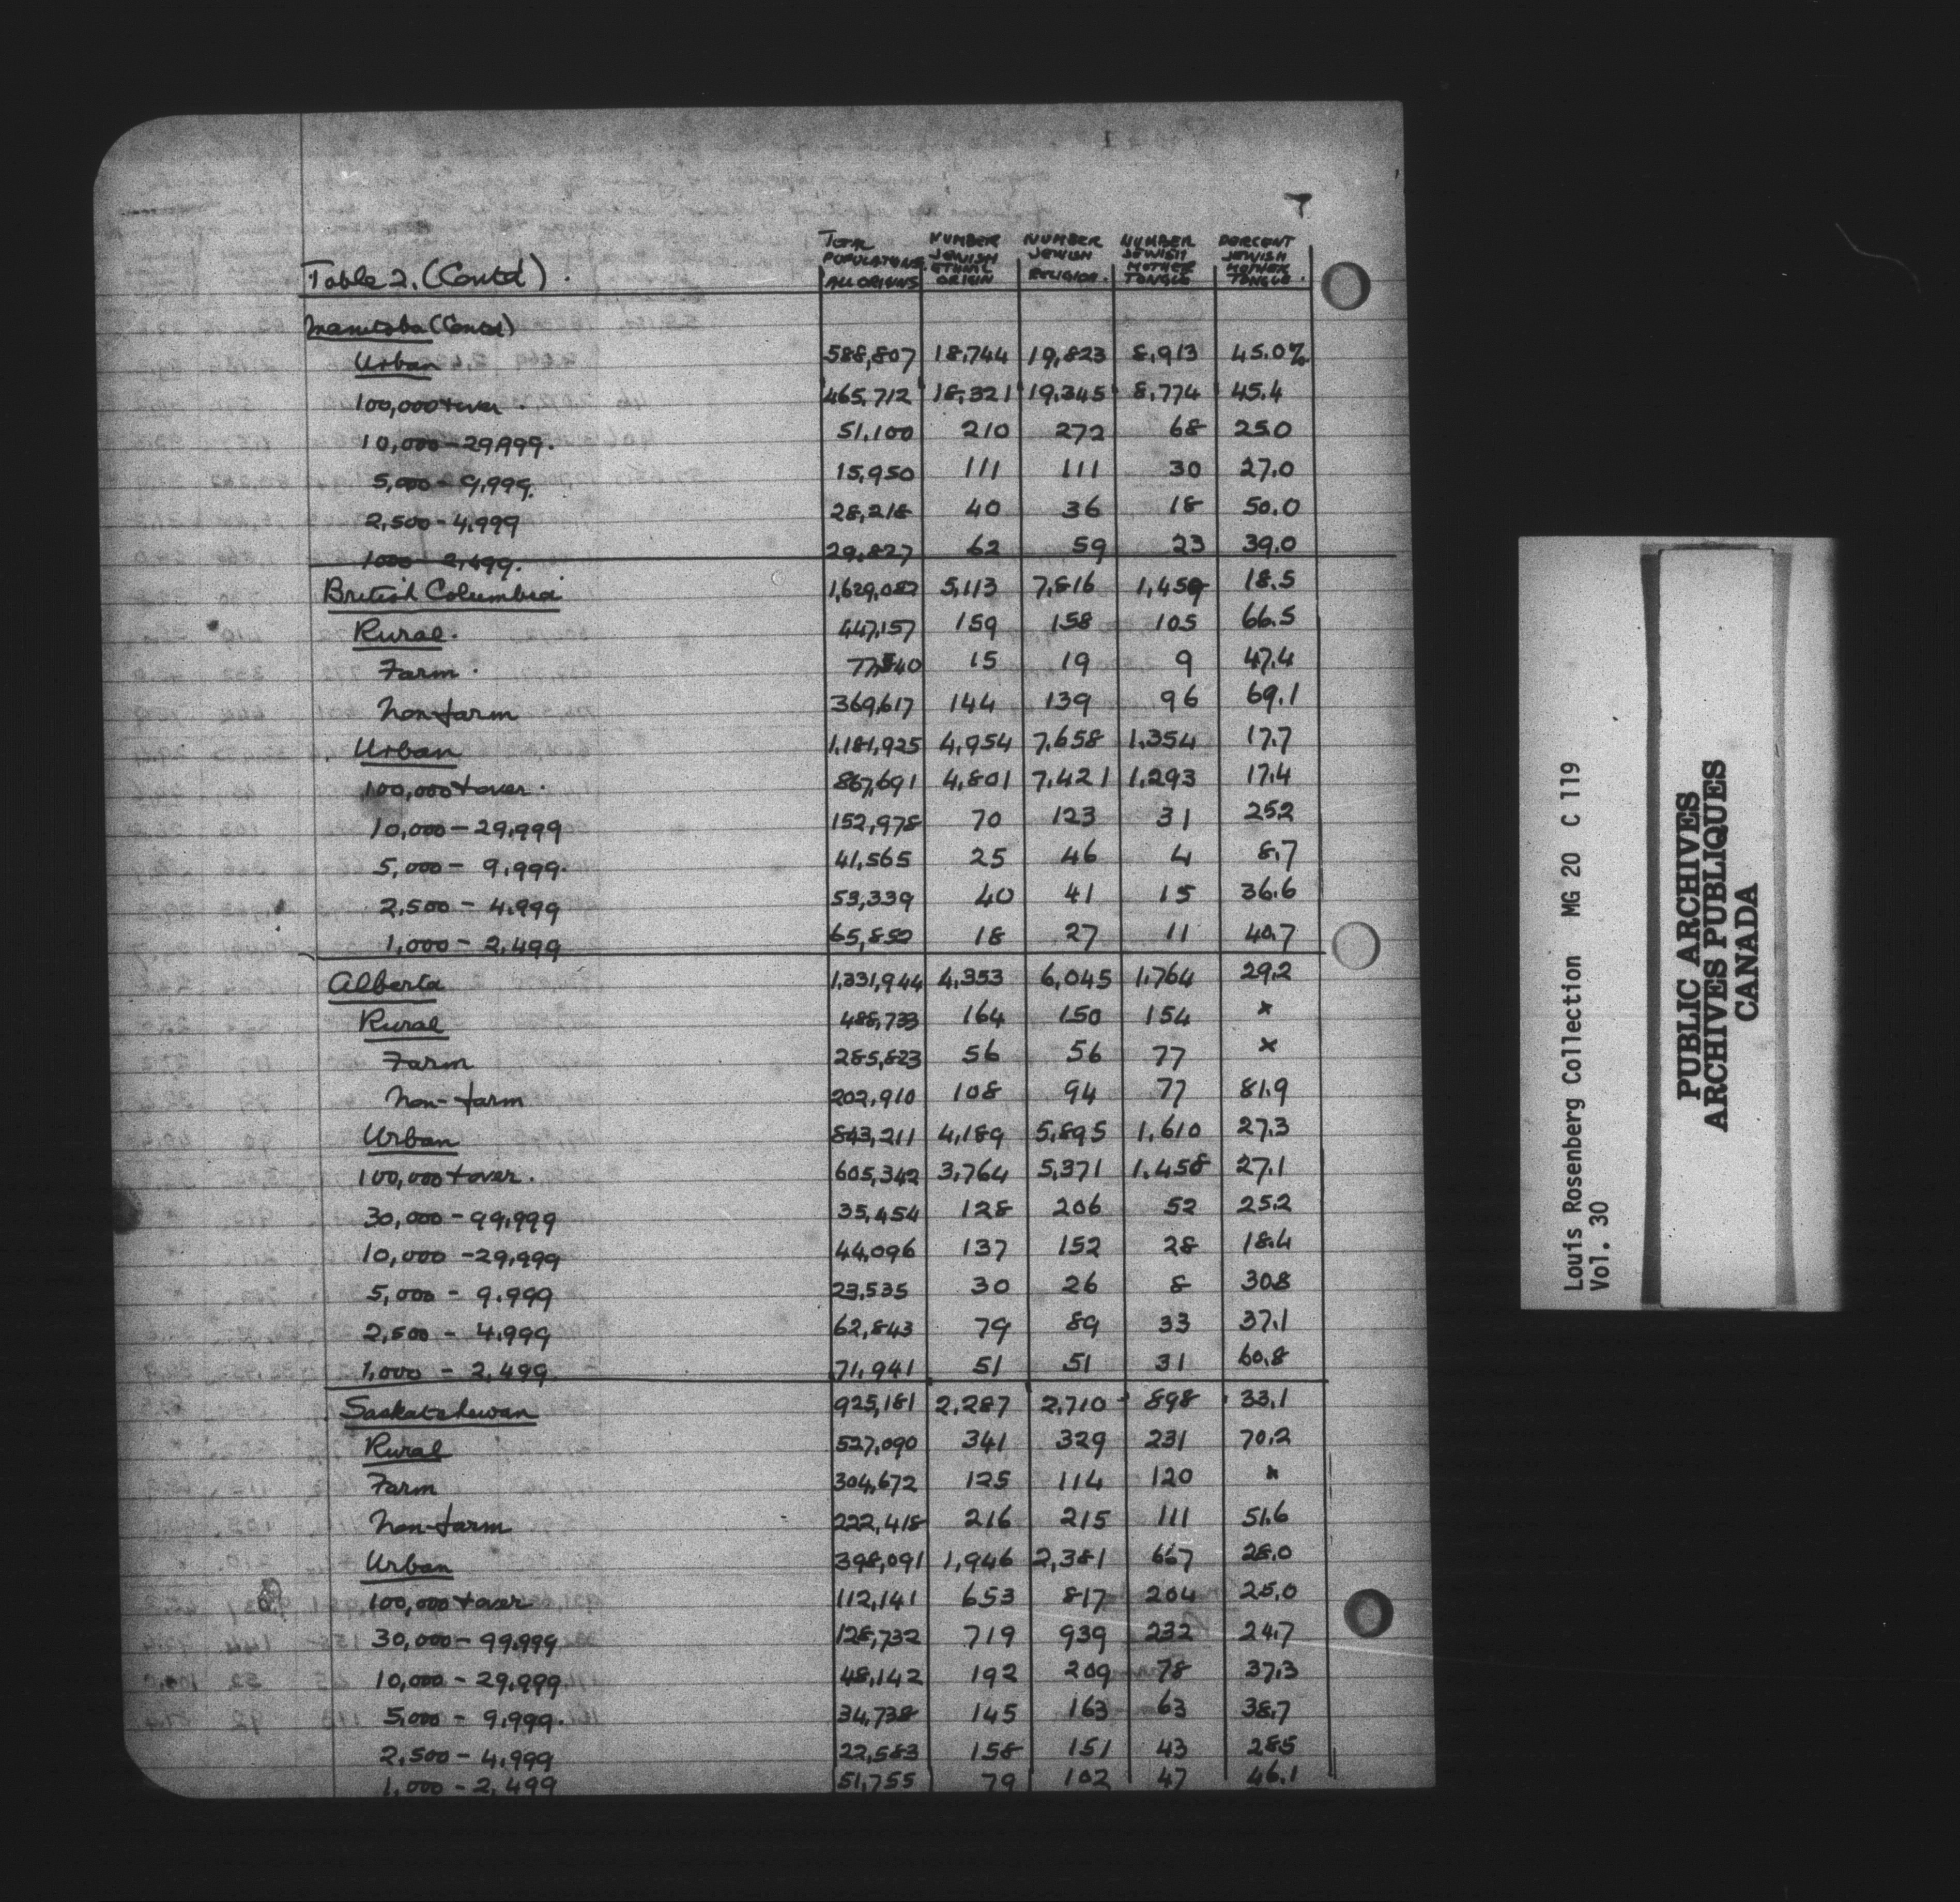 7
Table 2. (Contd).
TOTAL POPULATION ALL ORIGINS
NUMBER JEWISH ETHNIC ORIGIN
NUMBER JEWISH RELIGION.
NUMBER JEWISH MOTHER TONGUE
PERCENT JEWISH MOTHER TONGUE.
Manitoba (Contd)
Urban 588,807 18,744 19,823 8,913 45.0%
100,000 + over. 465,712 18,321 19,345 8,774 45.4
10,000 - 29,999. 51,100 210 272 68 25.0
5,000 - 9,999. 15,950 111 111 30 27.0
2,500 - 4,999 28,218 40 36 18 50.0
1000 - 2,499. 29,827 62 59 23 39.0
British Columbia 1,629,082 5,113 7,816 1,459 18.5
Rural. 447,157 159 158 105 66.5
Farm. 77,540 15 19 9 47.4
Non-farm 369,617 144 139 96 69.1
Urban 1,181,925 4,954 7,658 1,354 17.7
100,000 + over. 867,691 4,801 7,421 1,293 17.4
10,000 - 29,999 152,978 70 123 31 25.2
5,000 - 9,999. 41,565 25 46 4 8.7
2,500 - 4,999 53,339 40 41 15 36.6
1,000 - 2,499 65,852 18 27 11 40.7
Alberta 1,331,944 4,353 6,045 1,764 29.2
Rural 488,733 164 150 154 x
Farm 285,823 56 56 77 x
Non-farm 202,910 108 94 77 81.9
Urban 843,211 4,189 5,895 1,610 27.3
100,000 + over. 605,342 3,764 5,371 1,458 27.1
30,000 - 99,999 35,454 128 206 52 25.2
10,000 - 29,999 44,096 137 152 28 18.4
5,000 - 9,999 23,535 30 26 8 30.8
2,500 - 4,999 62,843 79 89 33 37.1
1,000 - 2,499 71,941 51 51 31 60.8
Saskatchewan 925,181 2,287 2,710 898 33.1
Rural 527,090 341 329 231 70.2
Farm 304,672 125 114 120 x
Non-farm 222,418 216 215 111 51.6
Urban 398,091 1,946 2,381 667 28.0
100,000 + over 112,141 653 817 204 25.0
30,000 - 99,999 128,732 719 939 232 24.7
10,000 - 29,999 48,142 192 209 78 37.3
5,000 - 9,999. 34,738 145 163 63 38.7
2,500 - 4,999 22,583 158 151 43 28.5
1,000 - 2,499 51,755 79 102 47 46.1
Louis Rosenberg Collection MG 20 C 119
Vol. 30
PUBLIC ARCHIVES
ARCHIVES PUBLIQUES
CANADA